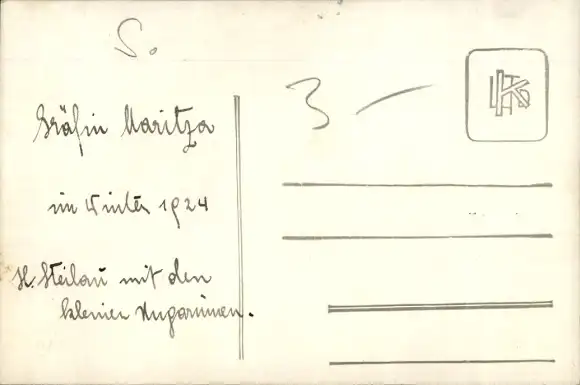 S.
3 —
Gräfin Maritza
im Winter 1924
H. Steilau mit den
kleinen Ungarinnen.